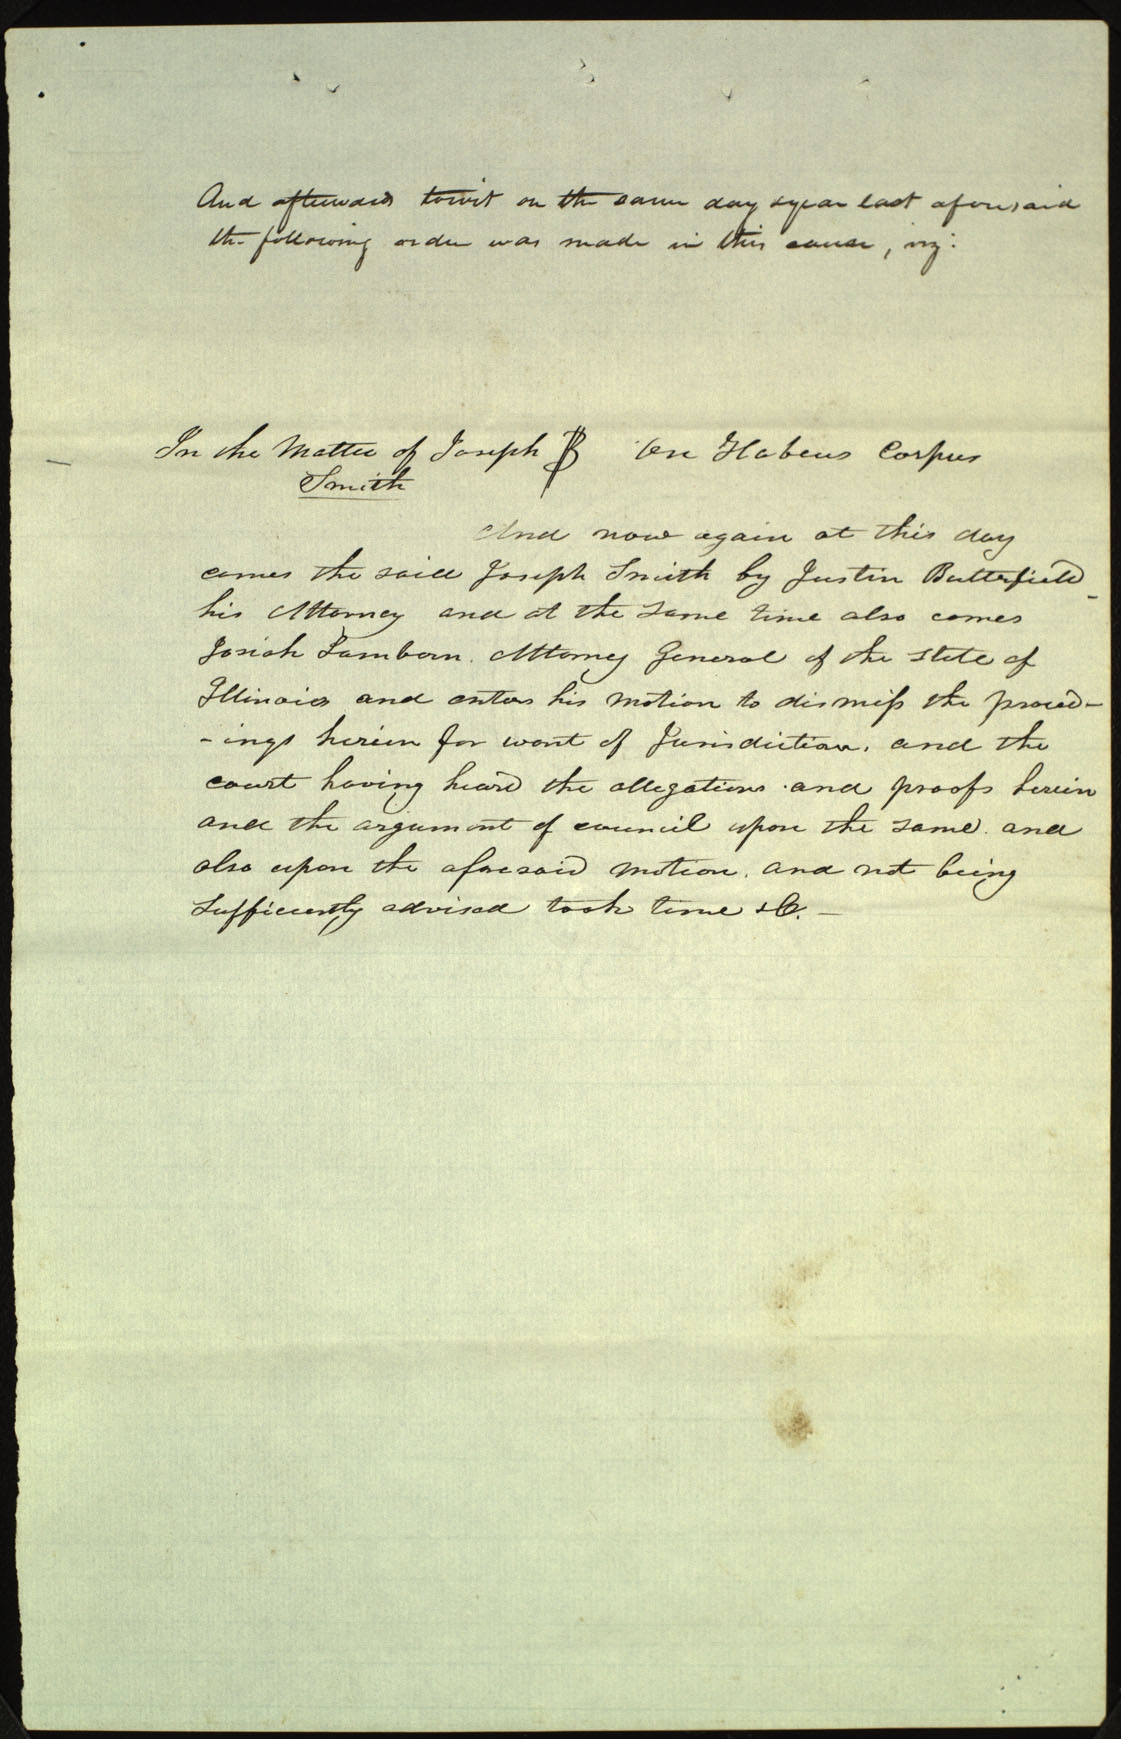 And afterwards towit on the same day & year last aforesaid
the following order was made in this cause, viz:
In the Matter of Joseph } On Habeus Corpus
Smith
And now again at this day
comes the said Joseph Smith by Justin Butterfield
his Attorney and at the same time also comes
Josiah Lamborn. Attorney General of the state of
Illinois and enters his motion to dismiss the proceed-
-ings herein for want of Jurisdiction. and the
court having heard the allegations and proofs herein
and the argument of council upon the same. and
also upon the aforesaid motion. and not being
sufficiently advised took time &C. —